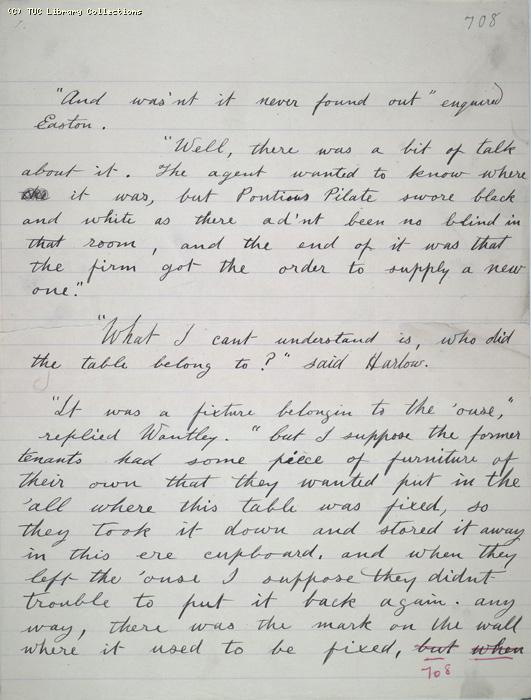 (C) TUC Library Collections
708
"And was'nt it never found out" enquired
Easton.
"Well, there was a bit of talk
about it. The agent wanted to know where
it was, but Pontius Pilate swore black
and white as there ad'nt been no blind in
that room, and the end of it was that
the firm got the order to supply a new
one."
"What I cant understand is, who did
the table belong to?" said Harlow.
"It was a fixture belongin to the 'ouse,"
replied Wantley. "but I suppose the former
tenants had some piece of furniture of
their own that they wanted put in the
'all where this table was fixed, so
they took it down and stored it away
in this ere cupboard. and when they
left the 'ouse I suppose they didnt
trouble to put it back again. any
way, there was the mark on the wall
where it used to be fixed, but when
708